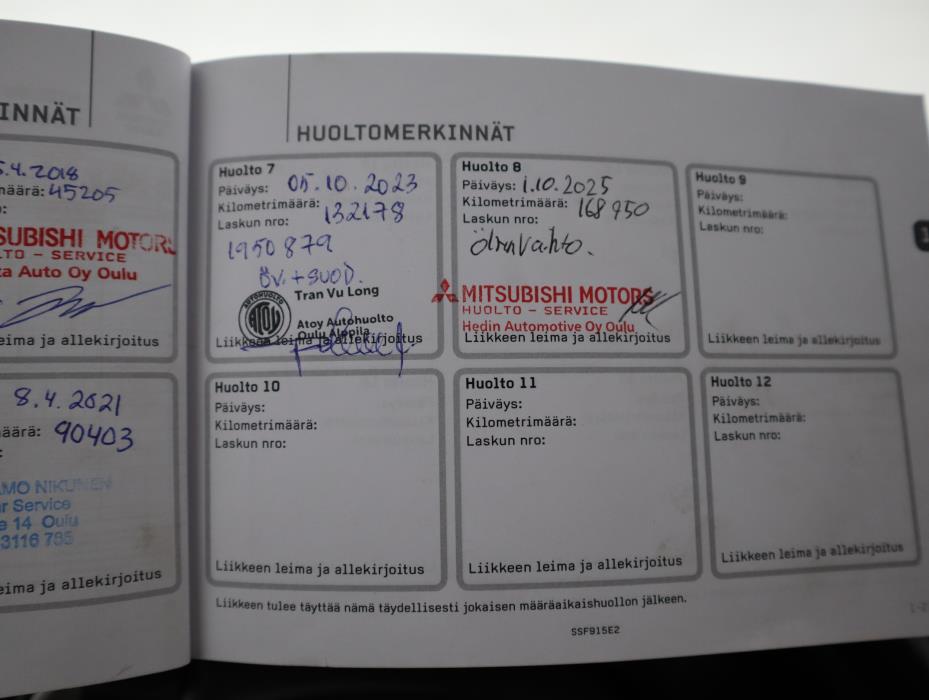 INNÄT
5.4.2018
määrä: 45205
SUBISHI MOTORS
LTO - SERVICE
ta Auto Oy Oulu
eima ja allekirjoitus
8.4.2021
äärä: 90403
MO NIKUNEN
r Service
e 14 Oulu
3116 785
eima ja allekirjoitus
HUOLTOMERKINNÄT
Huolto 7
Päiväys: 05.10.2023
Kilometrimäärä: 132178
Laskun nro:
1950879
ÖV.+SUOD.
Tran Vu Long
AUTOHUOLTO
ATOY
Atoy Autohuolto
Oulu Alppila
Liikkeen leima ja allekirjoitus
Huolto 8
Päiväys: 1.10.2025
Kilometrimäärä: 168 950
Laskun nro:
ölnvaihto.
MITSUBISHI MOTORS
HUOLTO - SERVICE
Hedin Automotive Oy Oulu
Liikkeen leima ja allekirjoitus
Huolto 9
Päiväys:
Kilometrimäärä:
Laskun nro:
Liikkeen leima ja allekirjoitus
Huolto 10
Päiväys:
Kilometrimäärä:
Laskun nro:
Liikkeen leima ja allekirjoitus
Huolto 11
Päiväys:
Kilometrimäärä:
Laskun nro:
Liikkeen leima ja allekirjoitus
Huolto 12
Päiväys:
Kilometrimäärä:
Laskun nro:
Liikkeen leima ja allekirjoitus
Liikkeen tulee täyttää nämä täydellisesti jokaisen määräaikaishuollon jälkeen.
SSF915E2